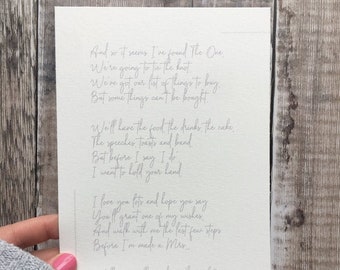 And so it seems I've found The One
We're going to tie the knot
We've got our list of things to buy
But some things can't be bought
We'll have the food the drinks the cake
The speeches toasts and band
But before I say 'I do'
I want to hold your hand
I love you lots and hope you say
You'll grant one of my wishes
And walk with me the last few steps
Before I'm made a Mrs